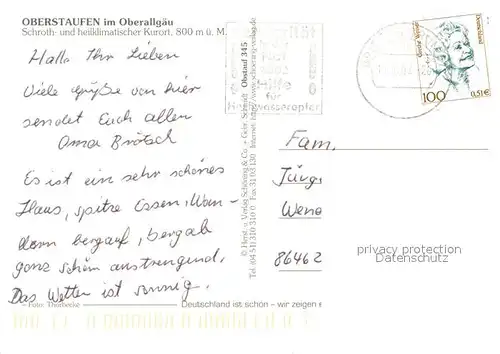 OBERSTAUFEN im Oberallgäu
Schroth- und heilklimatischer Kurort, 800 m ü. M.
Hallo Ihr Lieben
Viele Grüße von hier
sendet Euch allen
Oma Brötsch
Es ist ein sehr schönes
Haus, spitze Essen, Wan-
dern bergauf, bergab
ganz schön anstrengend.
Das Wetter ist sonnig.
Foto: Thorbecke
Deutschland ist schön – wir zeigen e
© Herst. u. Verlag Schöning & Co. + Gebr. Schmidt
Obstand 345
Hilfe
für
Hochwasseropfer
Deutschland
100
0,51€
Fam.
Jürg
Wene
86462
privacy protection
Datenschutz